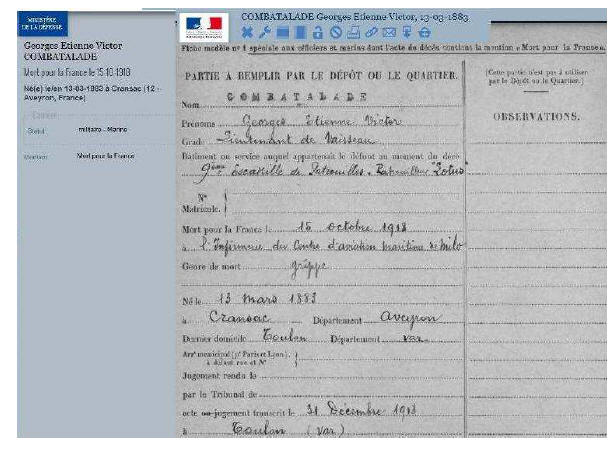 MINISTÈRE
DE LA DÉFENSE
COMBATALADE Georges Etienne Victor, 13-03-1883
Georges Etienne Victor
COMBATALADE
Mort pour la France le 15-10-1918
Né(e) le/en 13-03-1883 à Cransac (12 -
Aveyron, France)
Carrière
Statut militaire - Marine
Mention Mort pour la France
Fiche modèle nº 1 spéciale aux officiers et marins dont l'acte de décès contient la mention « Mort pour la France
PARTIE A REMPLIR PAR LE DÉPÔT OU LE QUARTIER.
Nom COMBATALADE
Prénoms Georges Etienne Victor
Grade Lieutenant de Vaisseau
Bâtiment ou service auquel appartenait le défunt au moment du décès
9ème Escadrille de Patrouilles - Patrouilleur "Lotus"
Nº
Matricule.
Mort pour la France le 15 octobre 1918
à l'Infirmerie du Centre d'aviation maritime de Milo
Genre de mort grippe
Né le 13 mars 1883
à Cransac Département Aveyron
Dernier domicile Toulon Département Var
Arrt municipal (pr Paris et Lyon),
à défaut rue et Nº
Jugement rendu le
par le Tribunal de
acte ou jugement transcrit le 31 Décembre 1918
à Toulon (Var)
(Cette partie n'est pas à utiliser
par le Dépôt ou le Quartier.)
OBSERVATIONS.